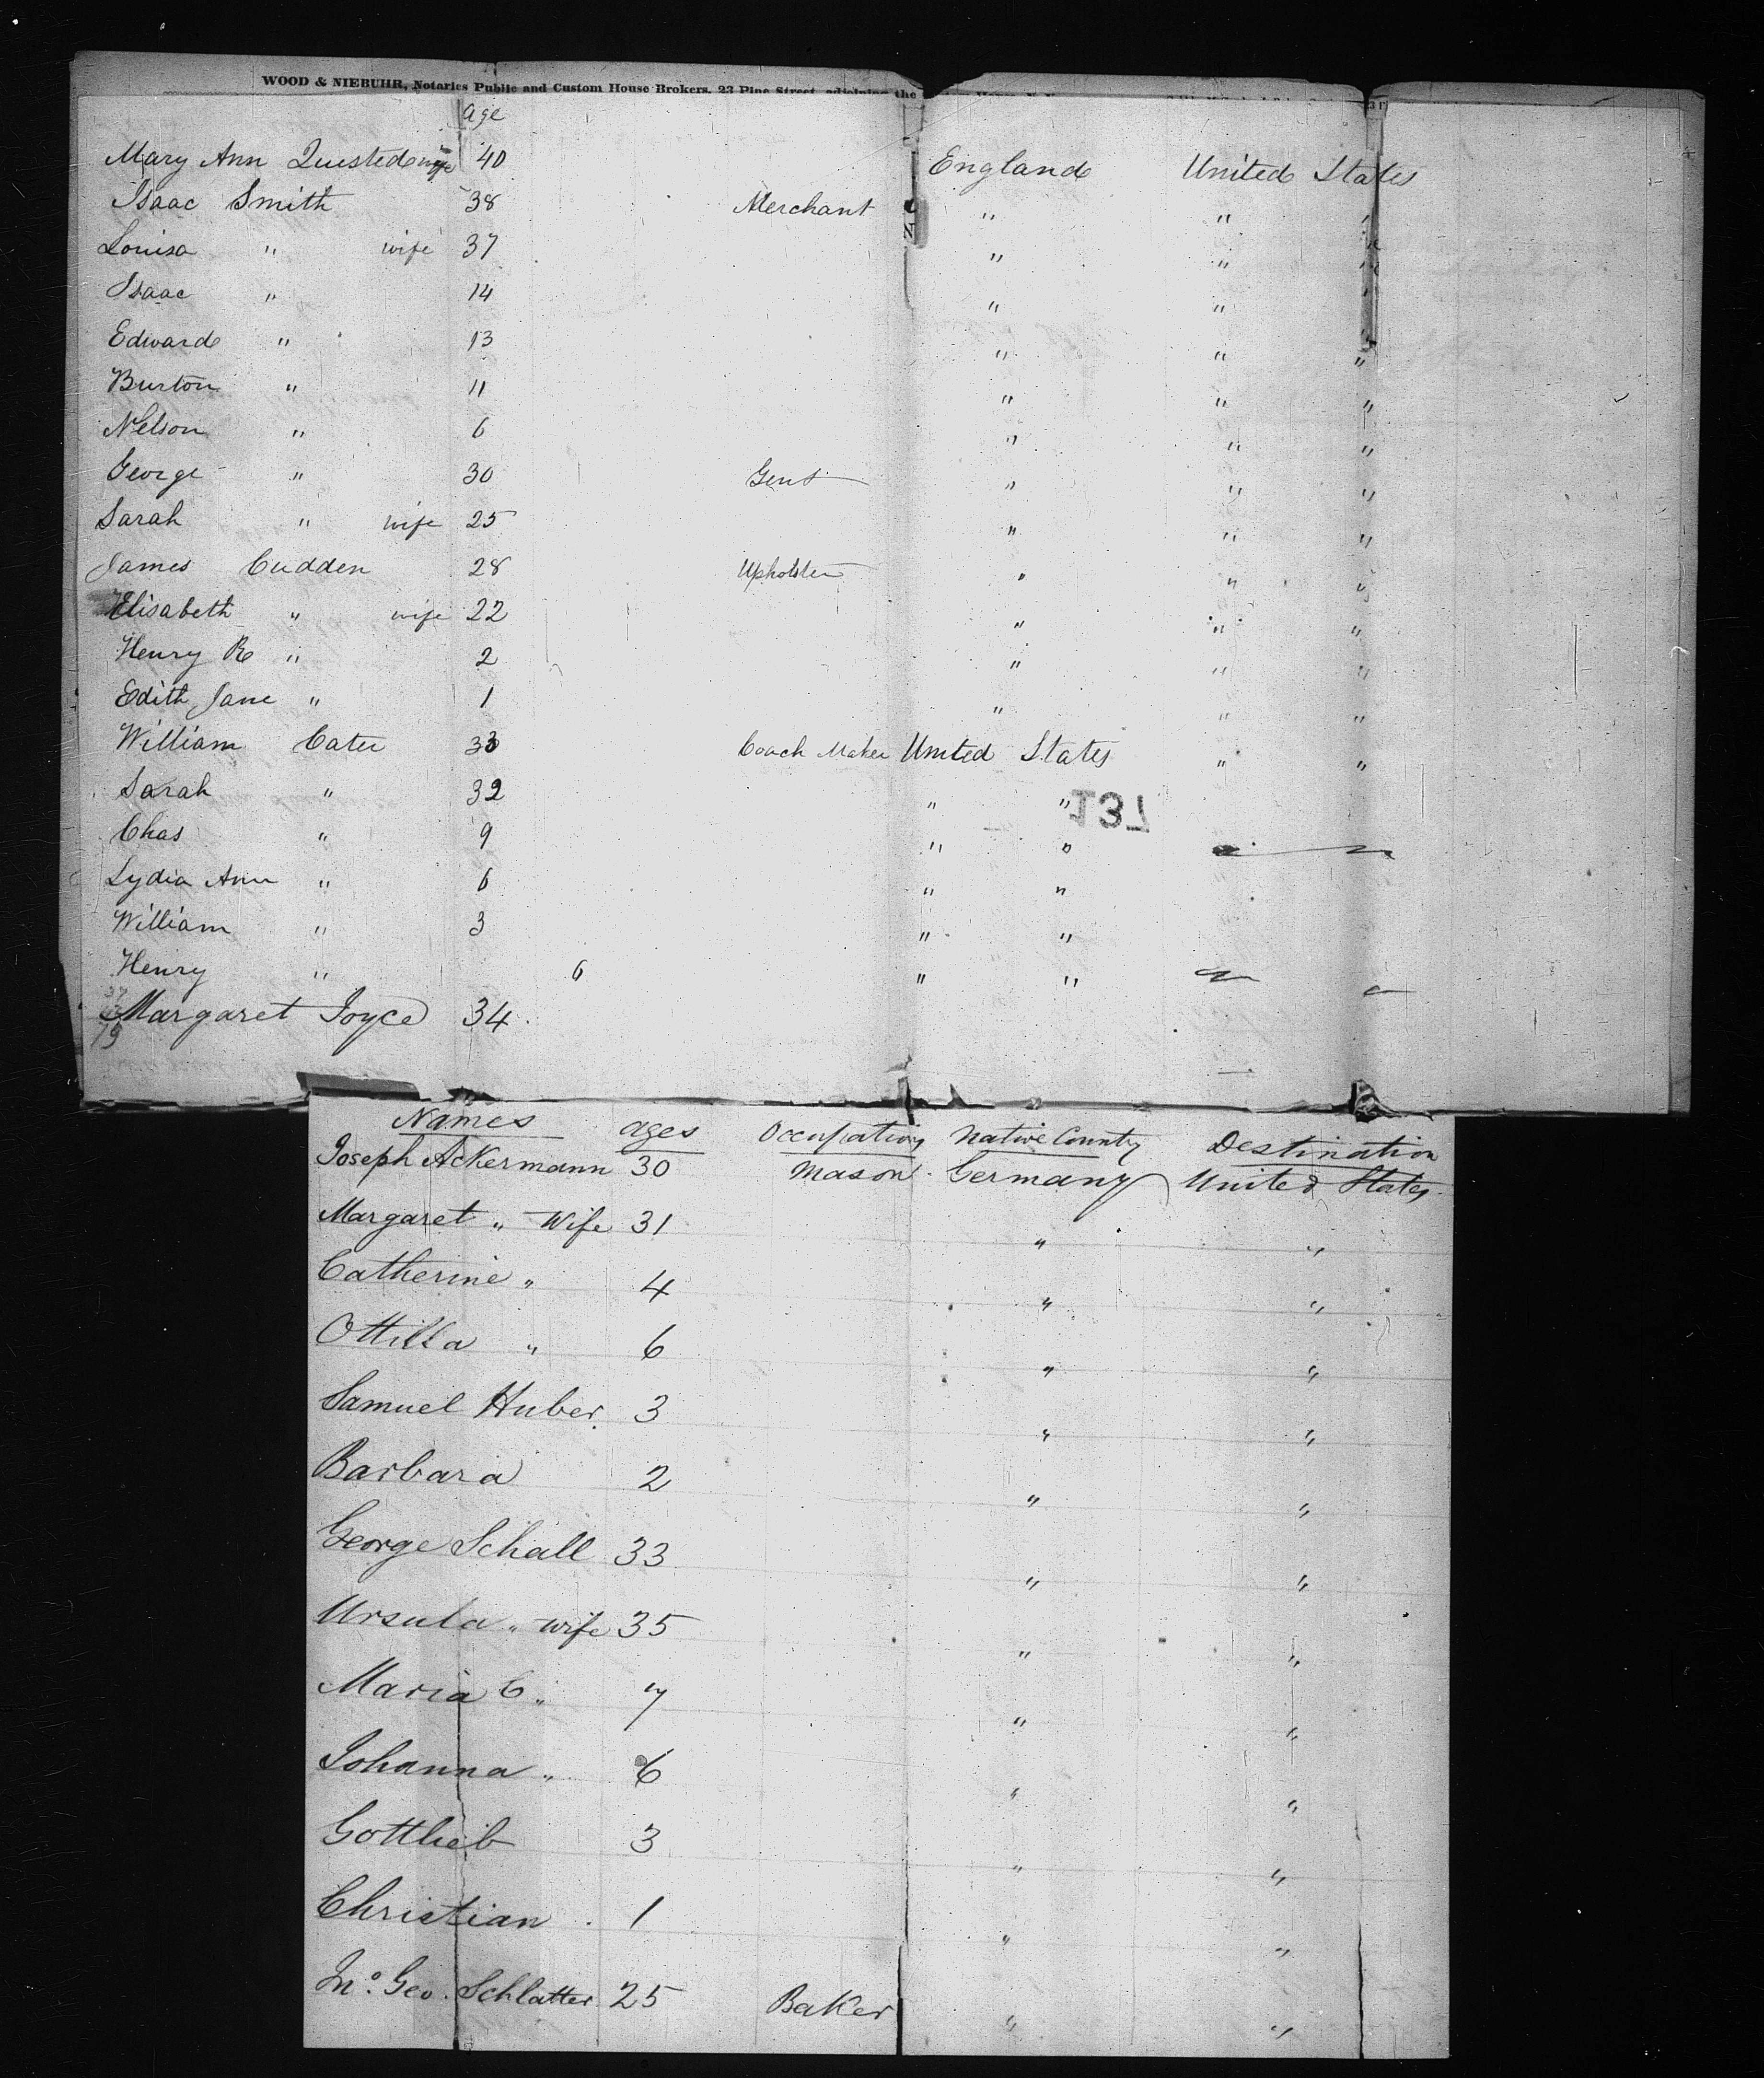 WOOD & NIEBUHR, Notaries Public and Custom House Brokers, 23 Pine Street, adjoining the
age
Mary Ann Quested wife 40 England United States
Isaac Smith 38 Merchant " " "
Louisa " wife 37 " " "
Isaac " 14 " " "
Edward " 13 " " "
Burton " 11 " " "
Nelson " 6 " " "
George " 30 Gent " " "
Sarah " wife 25 " " "
James Cudden 28 Upholster " " "
Elisabeth " wife 22 " " "
Henry R " 2 " " "
Edith Jane " 1 " " "
William Cater 33 Coach Maker United States " "
Sarah " 32 " "
137
Chas " 9 " "
Lydia Ann " 6 " "
William " 3 " "
Henry " 6 " "
Margaret Joyce 34
79
Names ages Occupation Native County Destination
Joseph Ackermann 30 Mason Germany United States
Margaret " Wife 31 " "
Catherine " 4 " "
Ottilla " 6 " "
Samuel Huber 3 " "
Barbara 2 " "
George Schall 33 " "
Ursula " wife 35 " "
Maria C " 7 " "
Johanna " 6 " "
Gottlieb 3 " "
Christian 1 " "
Jno. Geo. Schlatter 25 Baker " "